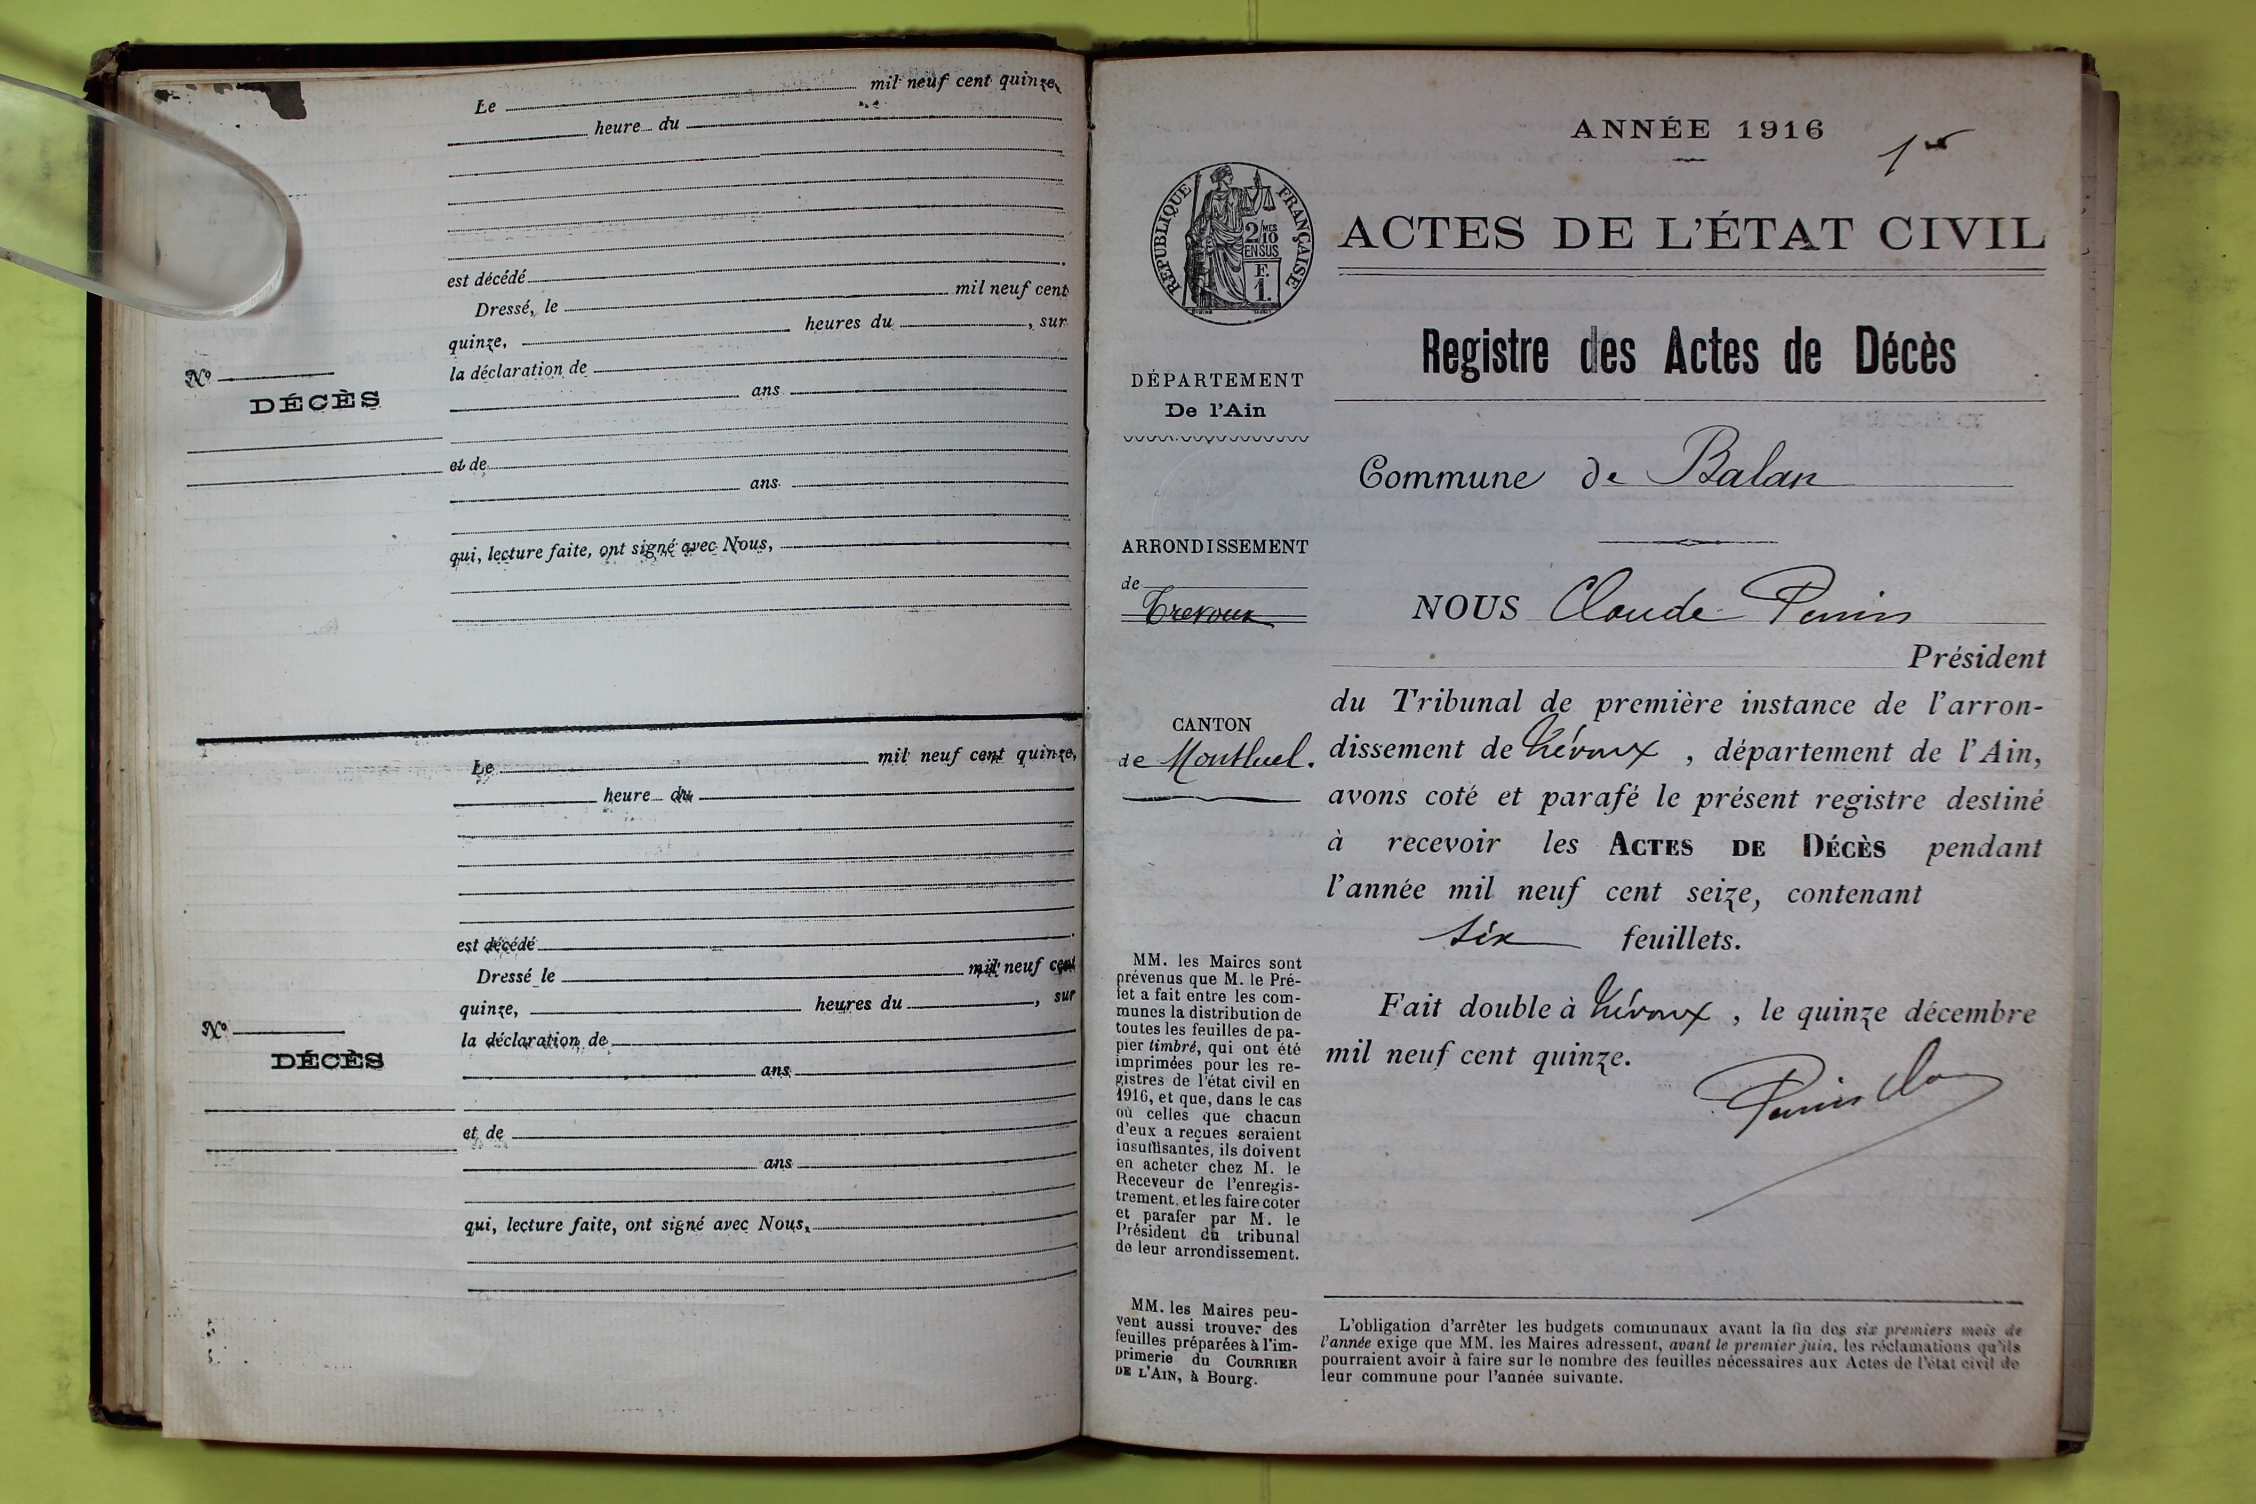 Le mil neuf cent quinze,
heure du
est décédé
Dressé, le mil neuf cent
quinze, heures du , sur
la déclaration de
ans
et de
ans
qui, lecture faite, ont signé avec Nous,
N°
DÉCÈS
Le mil neuf cent quinze,
heure du
est décédé
Dressé le mil neuf cent
quinze, heures du , sur
la déclaration de
ans
et de
ans
qui, lecture faite, ont signé avec Nous,
N°
DÉCÈS
ANNÉE 1916
RÉPUBLIQUE FRANÇAISE
2/10 MES
EN SUS
F.
1.
ACTES DE L'ÉTAT CIVIL
Registre des Actes de Décès
DÉPARTEMENT
De l'Ain
ARRONDISSEMENT
de
Trevoux
CANTON
de Montluel.
MM. les Maires sont
prévenus que M. le Pré-
fet a fait entre les com-
munes la distribution de
toutes les feuilles de pa-
pier timbré, qui ont été
imprimées pour les re-
gistres de l'état civil en
1916, et que, dans le cas
où celles que chacun
d'eux a reçues seraient
insuffisantes, ils doivent
en acheter chez M. le
Receveur de l'enregis-
trement, et les faire coter
et parafer par M. le
Président du tribunal
de leur arrondissement.
MM. les Maires peu-
vent aussi trouver des
feuilles préparées à l'im-
primerie du COURRIER
DE L'AIN, à Bourg.
Commune de Balan
NOUS Claude
Président
du Tribunal de première instance de l'arron-
dissement de Trévoux , département de l'Ain,
avons coté et parafé le présent registre destiné
à recevoir les ACTES DE DÉCÈS pendant
l'année mil neuf cent seize, contenant
six feuillets.
Fait double à Trévoux , le quinze décembre
mil neuf cent quinze.
L'obligation d'arrêter les budgets communaux avant la fin des six premiers mois de
l'année exige que MM. les Maires adressent, avant le premier juin, les réclamations qu'ils
pourraient avoir à faire sur le nombre des feuilles nécessaires aux Actes de l'état civil de
leur commune pour l'année suivante.